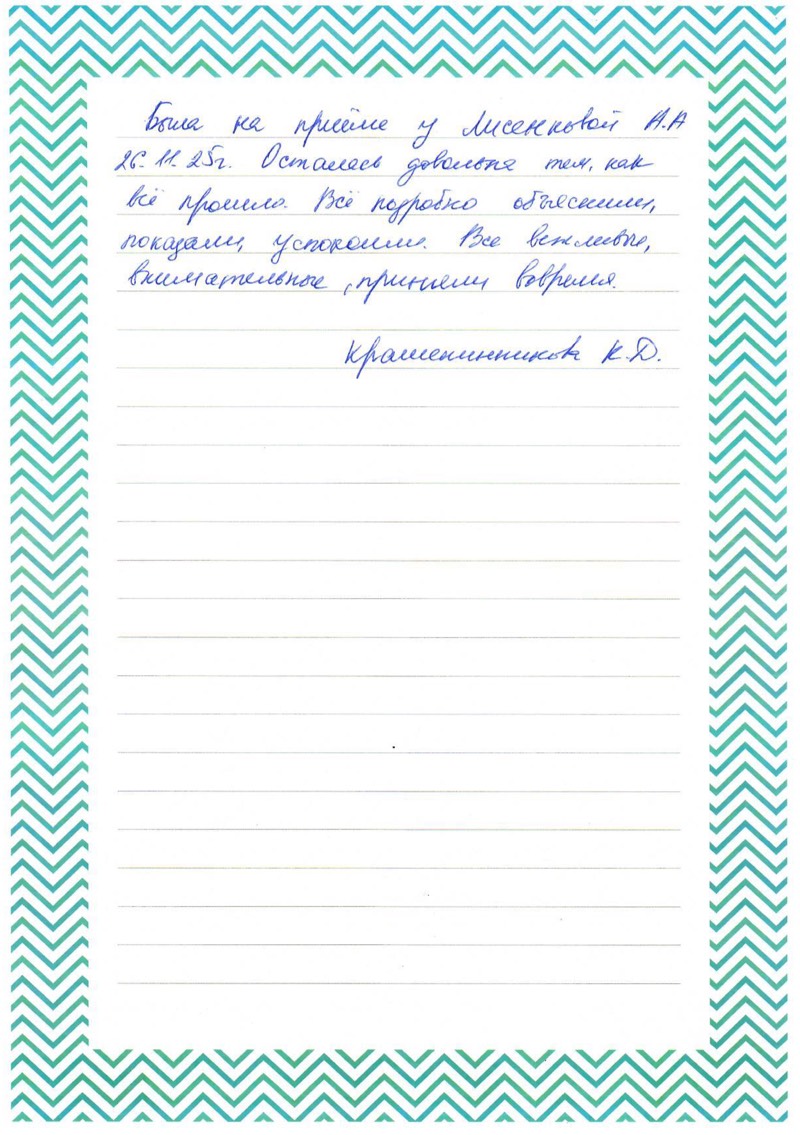 Была на приёме у Лисенковой А.А
26.11.25г. Осталась довольна тем, как
всё прошло. Всё подробно объяснили,
показали, успокоили. Все вежливые,
внимательные, приняли вовремя.
Крашенинникова К.Д.